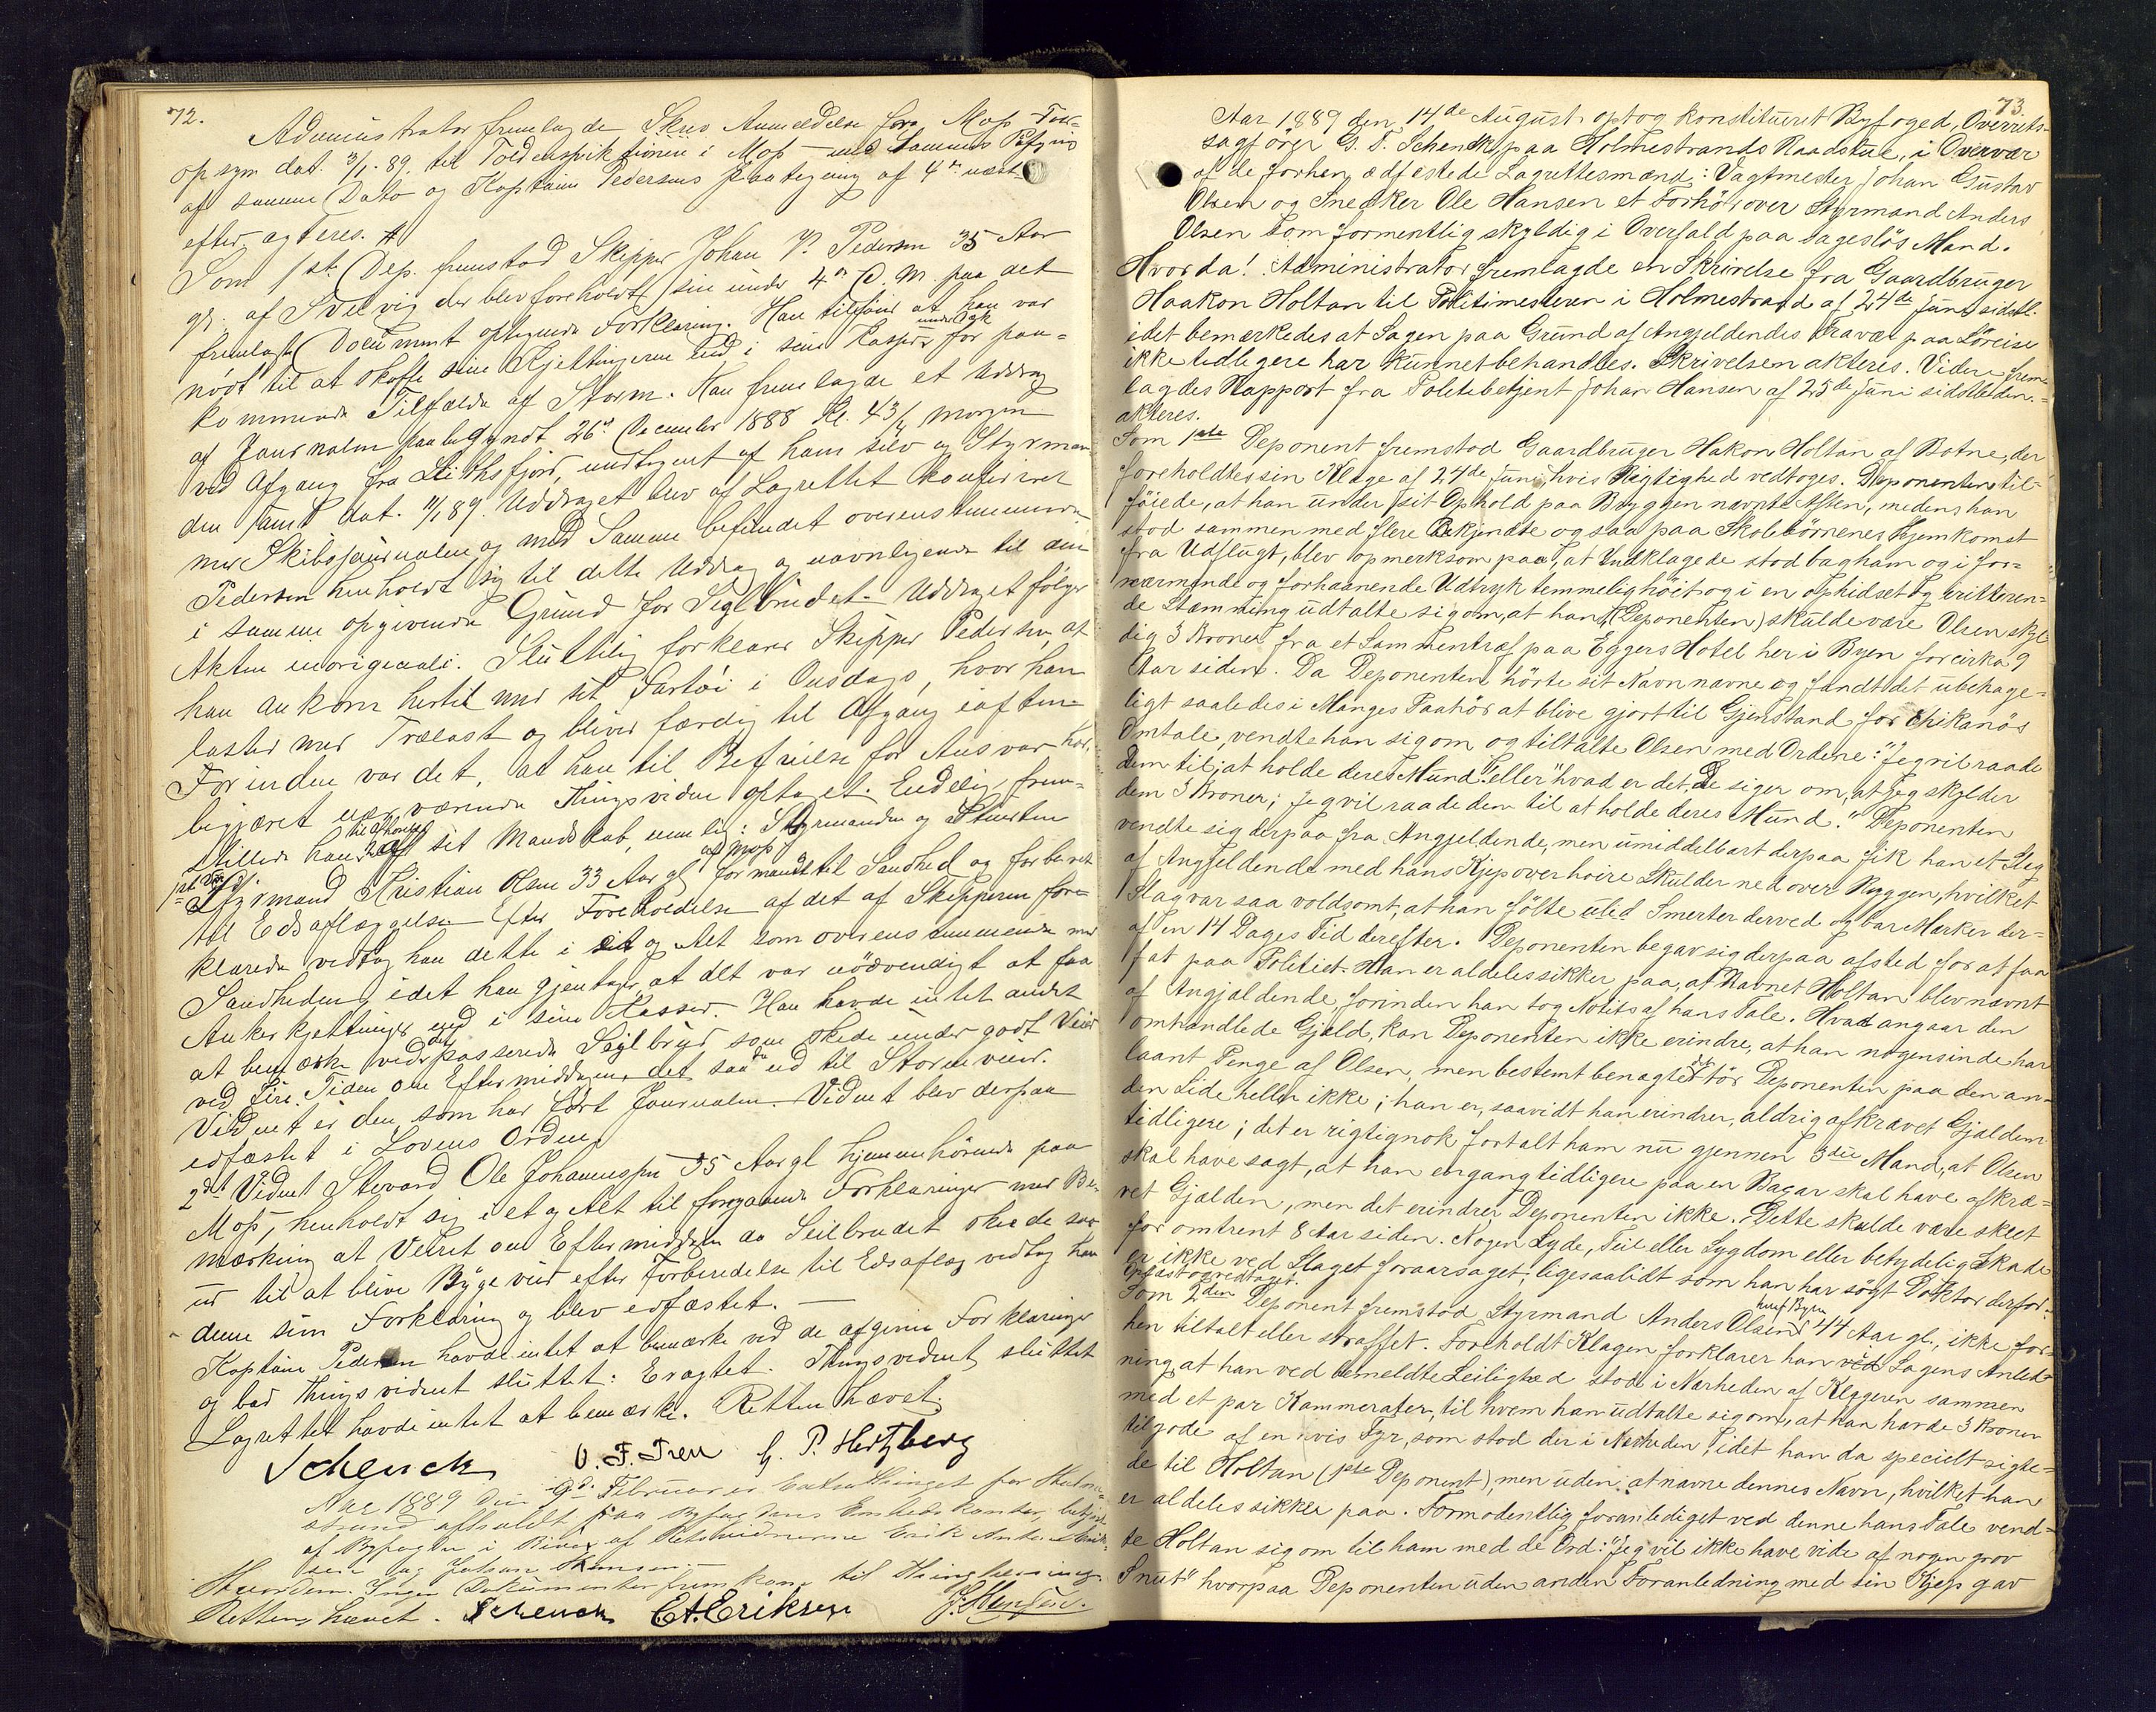 72.
Administrator fremlagde Skriv. Anmeldelse fra Moss Told-
opsyn dat. 3/1. 89. til Toldinspektionen i Moss med Sammes Paategning
af samme Dato og Kaptain Pedersens Paategning af 4de næst-
efter, agteres.
Som 1ste Dep. fremstod Skipper Johan P. Pedersen 35 Aar
gl. af Svelvig der blev foreholdt sin under 4de d. M. paa det
fremlagte Document optagende Forklaring. Han tilføiet at han var
nødt til at skaffe sine Kjettingerne ned i sine Kasser under Dæk for paa-
kommende Tilfælde af Storm. Han fremlagde et Uddrag
af Journalen paabegyndt 26de December 1888 Kl. 4 3/4 Morgen
ved Afgang fra Leithsfjord, undtegnet af ham selv og Styrman-
den samt dat. 11/1 89. Uddraget blev af Lagrettet konfereret
med Skibsjournalen og med Samme befundet overensstemmende
Pedersen henholdt sig til dette Uddrag og navnligen til den
i samme opgivende Grund for Seglbrudet. Uddraget følger
Akten in originali. Sluttelig forklarer Skipper Pedersen, at
han ankom hertil med sit Fartøi i Onsdags, hvor han
laster med Trælast og bliver færdig til Afgang iaften
Forinden var det, at han til Befrielse for Ansvar har
begjæret nærværende Thingsvidne optaget. Endelig frem-
stillede han til Afhørelse af sit Mandskab, nemlig: Styrmanden og Stuerten
1ste Vid. Styrmand Kristian Olsen 33 Aar gl af Moss formanet til Sandhed og forberedt
til Edsaflæggelse Efter Foreholdelse af det af Skipperen for-
klarede vedtog han dette i eit og Alt som overensstemmende med
Sandheden, idet han gjentager, at det var nødvendigt at faa
Ankerkjettinger ned i sine Kasser. Han havde intet andet
at bemærke ved det passerede Seglbrud som skede under godt Veir
ved Fire Tiden om Eftermiddagen, det saa da ud til Storm veir.
Vidnet er den, som har ført Journalen. Vidnet blev derpaa
edfæstet i Lovens Orden
2det Vidnet Stevard Ole Johannessen 35 Aar gl hjemmehørende paa
Moss, henholdt sig i et og Alt til foregaaende Forklaringer med Be-
mærkning at Veiret om Eftermiddagen da Seilbrudet skede saa
ud til at blive Bygeveir efter Forberedelse til Edsaflæg vedtog han
denne sin Forklaring og blev edfæstet. —
Kaptain Pedersen havde intet at bemærke ved de afgivne Forklaringer
og bad Thingsvidnet sluttet: Eragtet. Thingsvidnet sluttet
Lagrettet havde intet at bemærke. Retten hævet.
Schenck O. F. Iren G. P. Hertzberg
Aar 1889 den 9de Februar er Extrathinget for Holme-
strand afholdt paa Byfogdens Embedskontor, betjent
af Byfogden i Bivær af Retsvidnerne Erik Anton Erik-
sen og Johan Hansen
Hvorda. Ingen Dokumenter fremkom til Thinglæsning.
Retten hævet. Schenck E A. Eriksen J. Hansen.
73.
Aar 1889 den 14de August optog konstitueret Byfoged, Overrets-
sagfører G. F. Schenck paa Holmestrands Raadstue, i Overvær
af de forhen edfestede Lagrettesmænd: Vagtmester Johan Gustav
Olsen og Snedker Ole Hansen et Forhør over Styrmand Anders
Olsen som formentlig skyldig i Overfald paa sagesløs Mand.
Hvorda! Administrator fremlagde en Skrivelse fra Gaardbruger
Haakon Holtan til Politimesteren i Holmestrand af 24de Juni sidstl.
idet bemærkedes at Sagen paa Grund af Angjeldendes Fravær paa Søreise
ikke tidligere har kunnet behandles. Skrivelsen akteres. Videre frem-
lagdes Rapport fra Politibetjent Johan Hansen af 25de Juni sidstleden.
akteres.
Som 1ste Deponent fremstod Gaardbruger Hakon Holtan af Botne, der
foreholdtes sin Klage af 24de Juni, hvis Rigtighed vedtoges. Deponenten til-
føiede, at han under sit Ophold paa Bryggen nævnte Aften, medens han
stod sammen med flere Bekjendte og saa paa Skolebørnenes Hjemkomst
fra Udflugt, blev opmerksom paa, at Indklagede stod bag ham og i for-
nærmende og forhaanende Udtryk temmelig høit og i en ophidset og irriteren-
de Stemning udtalte sig om, at han (Deponenten) skulde være Olsen skyl-
dig 3 Kroner fra et Sammentræf paa Eggers Hotel her i Byen for cirka 9
Aar siden. Da Deponenten hørte sit Navn nævne og fandt det ubehage-
ligt saaledes i Manges Paahør at blive gjort til Gjenstand for chikanøs
Omtale, vendte han sig om og tiltalte Olsen med Ordene: "Jeg vil raade
Dem til at holde deres Mund" eller "hvad er det De siger om, at jeg skylder
dem 3 Kroner; jeg vil raade dem til at holde deres Mund." Deponenten
vendte sig derpaa fra Angjeldende, men umiddelbart derpaa fik han et Slag
af Angjeldende med hans Kjep over høire Skulder ned over Ryggen, hvilket
Slag var saa voldsomt, at han følte ulid Smerter derved og bar Mærker der-
af en 14 Dages Tid derefter. Deponenten begav sig derpaa afsted for at faa
fat paa Politiet. Han er aldeles sikker paa, at Navnet Holtan blev nævnt
af Angjældende, forinden han tog Notits af hans Tale. Hvad angaar den
omhandlede Gjæld, kan Deponenten ikke erindre, at han nogensinde har
laant Penge af Olsen, men bestemt benægte det tør Deponenten paa den an-
den Side heller ikke; han er, saavidt han erindrer, aldrig afkrævet Gjælden
tidligere; det er rigtignok fortalt ham nu gjennem 3die Mand, at Olsen
skal have sagt, at han engang tidligere paa en Bazar skal have afkræ-
vet Gjælden, men det erindrer Deponenten ikke. Dette skulde være skeet
for omtrent 8 Aar siden. Nogen Lyde, Feil eller Sygdom eller betydelig Skade
er ikke ved Slaget foraarsaget, ligesaalidt som han har søgt Doktor derfor.
Oplæst og vedtaget.
Som 2den Deponent fremstod Styrmand Anders Olsen heraf Byen 44 Aar gl., ikke for-
hen tiltalt eller straffet. Foreholdt Klagen forklarer han ved Sagens Anled-
ning, at han ved bemeldte Leilighed stod i Nærheden af Klageren sammen
med et par Kammerater, til hvem han udtalte sig om, at han havde 3 Kroner
tilgode af en vis Fyr, som stod der i Nærheden, idet han da specielt sigte-
de til Holtan (1ste Deponent), men uden at nævne dennes Navn, hvilket han
er aldeles sikker paa. Formodentlig foranlediget ved denne hans Tale vend-
te Holtan sig om til ham med de Ord: "Jeg vil ikke have vide af nogen grov
Snut" hvorpaa Deponenten uden anden Foranledning med sin Kjep gav